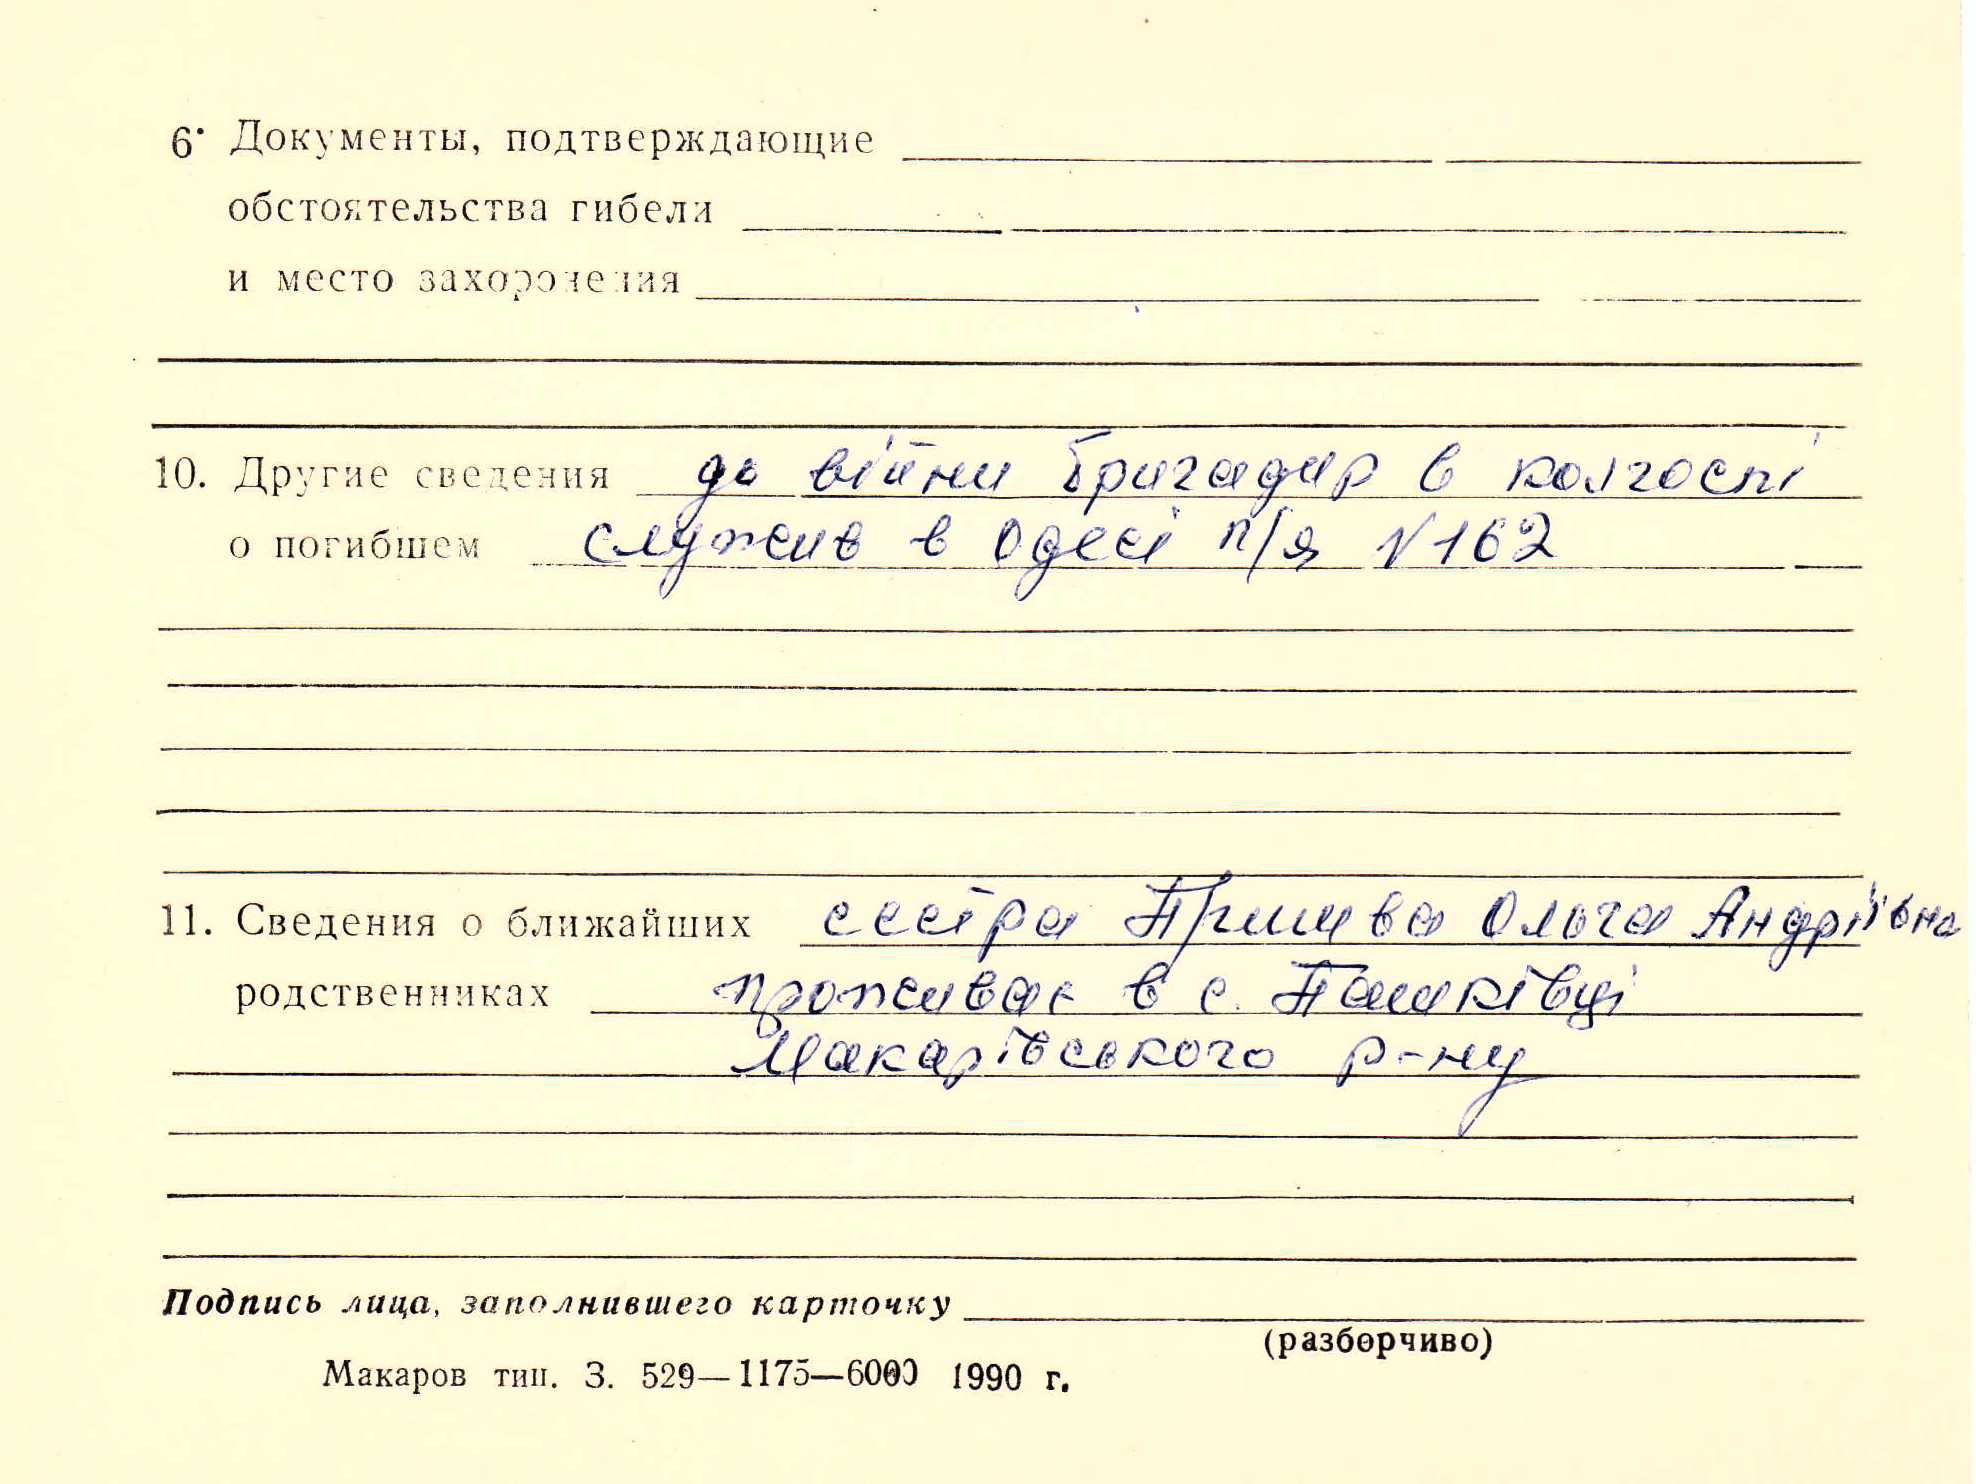 6. Документы, подтверждающие
обстоятельства гибели
и место захоронения
10. Другие сведения до війни бригадир в колгоспі
о погибшем служив в Одесі п/я №162
11. Сведения о ближайших сестра Ольга Андріївна
родственниках проживає в с. Пашківці
Макарівського р-ну
Подпись лица, заполнившего карточку
(разборчиво)
Макаров тип. З. 529—1175—6000 1990 г.